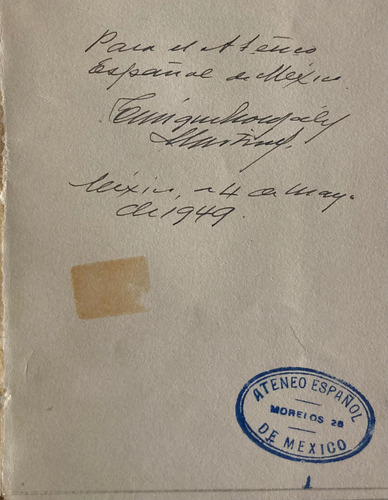 Para el Ateneo
Español de México.
Enrique González
Martínez.
México, a 4 de may.
de 1949.
ATENEO ESPAÑOL
MORELOS 26
DE MEXICO